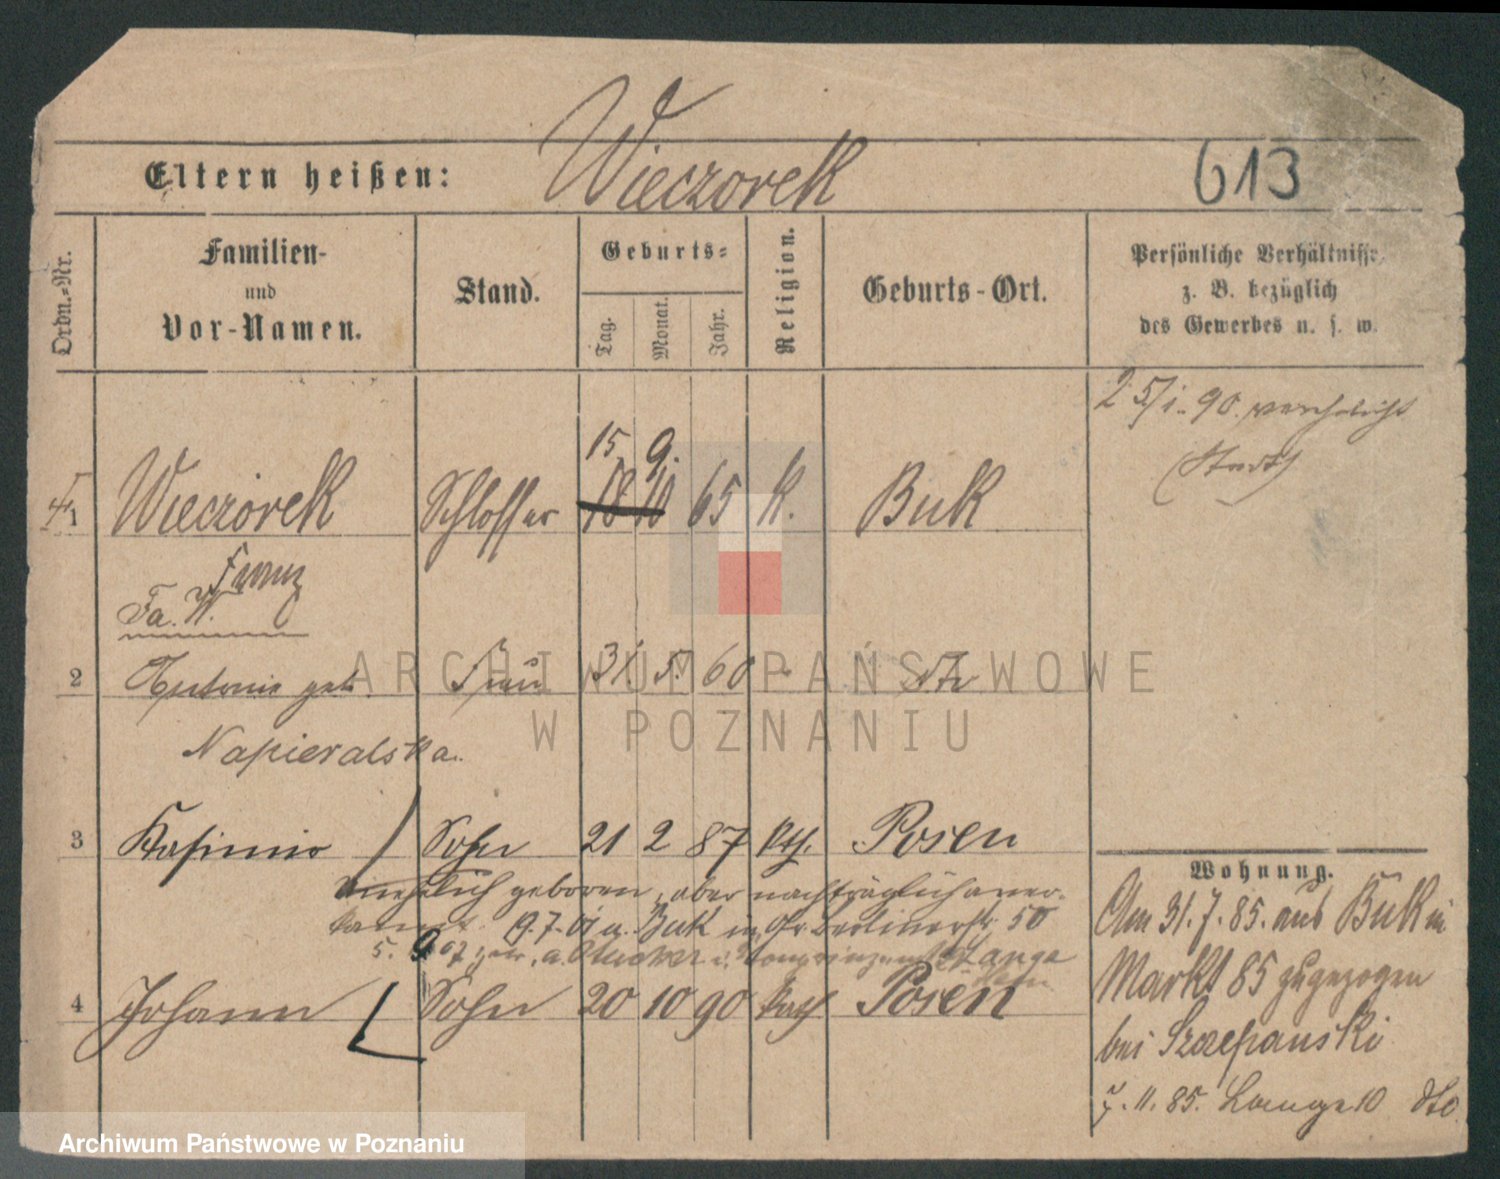 Eltern heißen: Wieczorek 613
Ordn.-Nr.
Familien-
und
Vor-Namen.
Stand.
Geburts-
Tag.
Monat.
Jahr.
Religion.
Geburts-Ort.
Persönliche Verhältnisse,
z. B. bezüglich
des Gewerbes u. s. w.
25/1. 90. verehelicht
(Stadt)
15. 9.
1 Wieczorek Schlosser 18 10 65 k. Buk
Franz
Fa. W.
2 Antonie geb. Frau 31. 5. 60 - dto
Napieralska.
3 Kasimir Sohn 21 2 87 kth. Posen
unehelich geboren, aber nachträglich aner-
kannt. 19.7.01 a. Buk in Gr. Berlinerstr. 50
5. 9 07
4 Johann Sohn 20 10 90 kath Posen
Wohnung.
Am 31. 7. 85. aus Buk in
Markt 85 zugezogen
bei Szczepanski
7. 11. 85. Lange 10 dto
ARCHIWUM PAŃSTWOWE
W POZNANIU
Archiwum Państwowe w Poznaniu